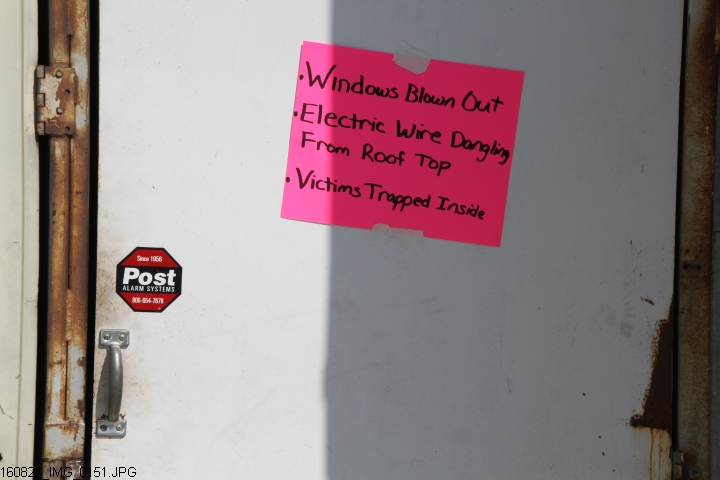 • Windows Blown Out
• Electric Wire Dangling
From Roof Top
• Victims Trapped Inside
Since 1956
Post
ALARM SYSTEMS
800-654-7678